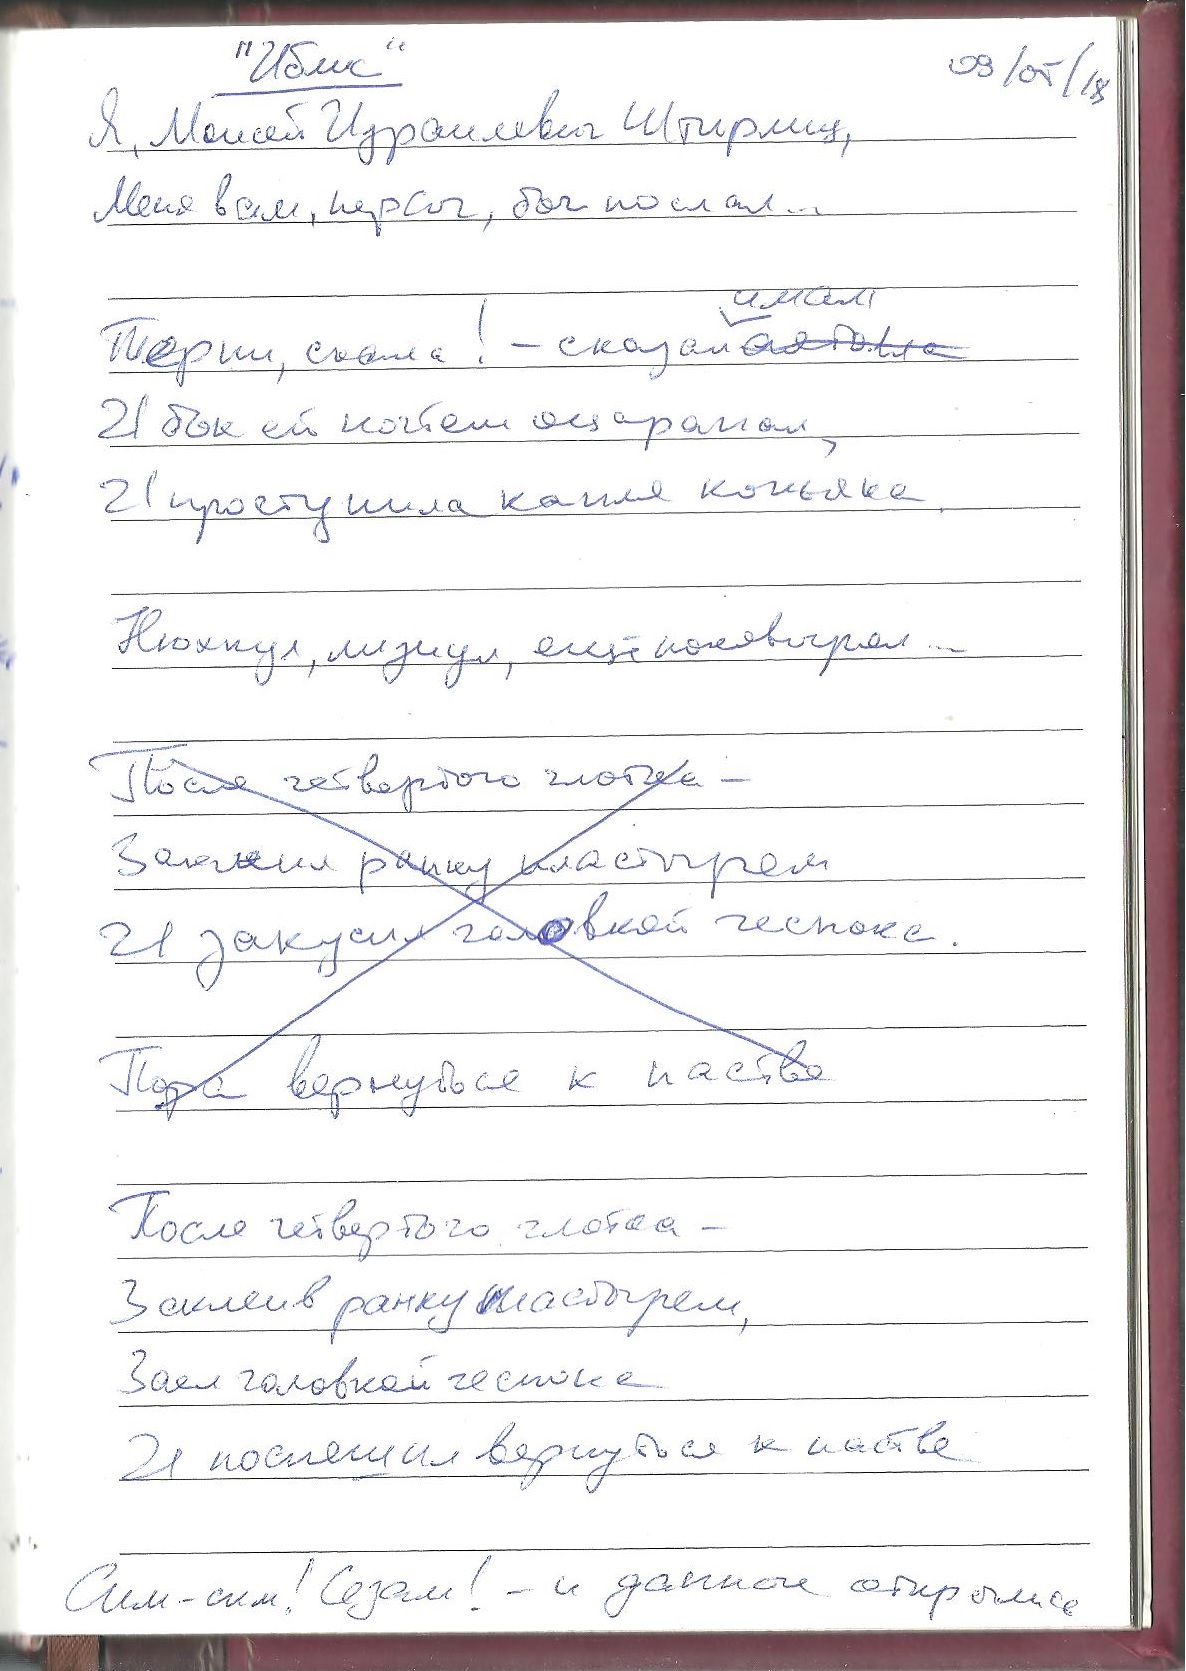 "Иблис"
09/05/18
Я, Моисей Израилевич Штирлиц,
Меня вам, персы, бог послал...
имам
Терпи, скала! – сказал аятолла
И бок ей ногтем оцарапал,
И проступила капля коньяка.
Нюхнул, лизнул, ещё поковырял...
После четвертого глотка –
Заклеил ранку пластырем
И закусил головкой чеснока.
Пора вернуться к пастве
После четвертого глотка –
Заклеив ранку пластырем,
Заел головкой чеснока
И поспешил вернуться к пастве
Сим-сим! Сезам! – и данные открылись